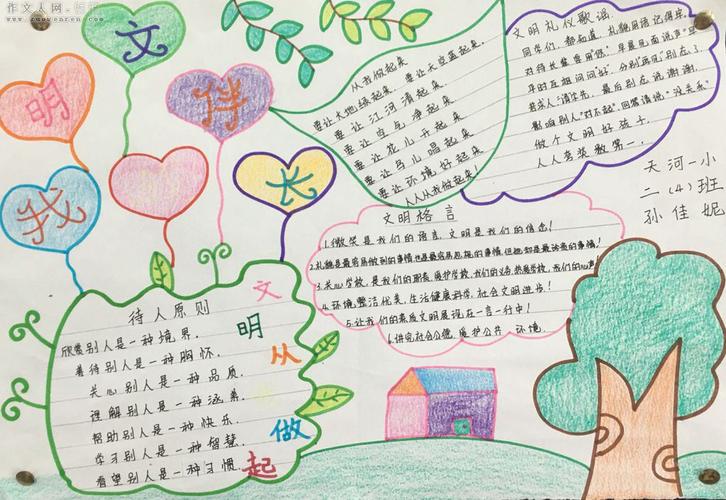 作文人网
www.zuowenren.com
文
明
伴
我
长
从我做起来
要让大地绿起来,要让天空蓝起来
要让江河清起来
要让空气净起来
要让花儿开起来
要让鸟儿唱起来
要让环境好起来
人人从我做起来!
文明礼仪歌谣:
同学们,都知道,礼貌用语记得牢
对待长辈要用"您",早晨见面说声"早
平时互相问问好,分别"再见"别忘了
若求人"请"字先,最后别忘说谢谢,
影响别人"对不起",回答请说"没关系"
做个文明好孩子,
人人夸类数第一.
天河一小
二(4)班
孙佳妮
文明格言
1.微笑是我们的语言,文明是我们的信念!
2.礼貌是最容易做到的事情也是最容易忽施的事情,但她却是最珍贵的事情!
3.关心学校,是我们的职责,爱护学校,我们的义务,热爱学校,我们的心声
4.环境整洁优美,生活健康科学,社会文明进步!
5.让我们的素质文明展现在一言一行中!
6.讲究社会公德,爱护公共 环境
待人原则
欣赏别人是一种境界,
善待别人是一种胸怀.
关心别人是一种品质.
理解别人是一种涵养.
帮助别人是一种快乐.
学习别人是一种智慧.
看望别人是一种习惯
文
明
从
做
起